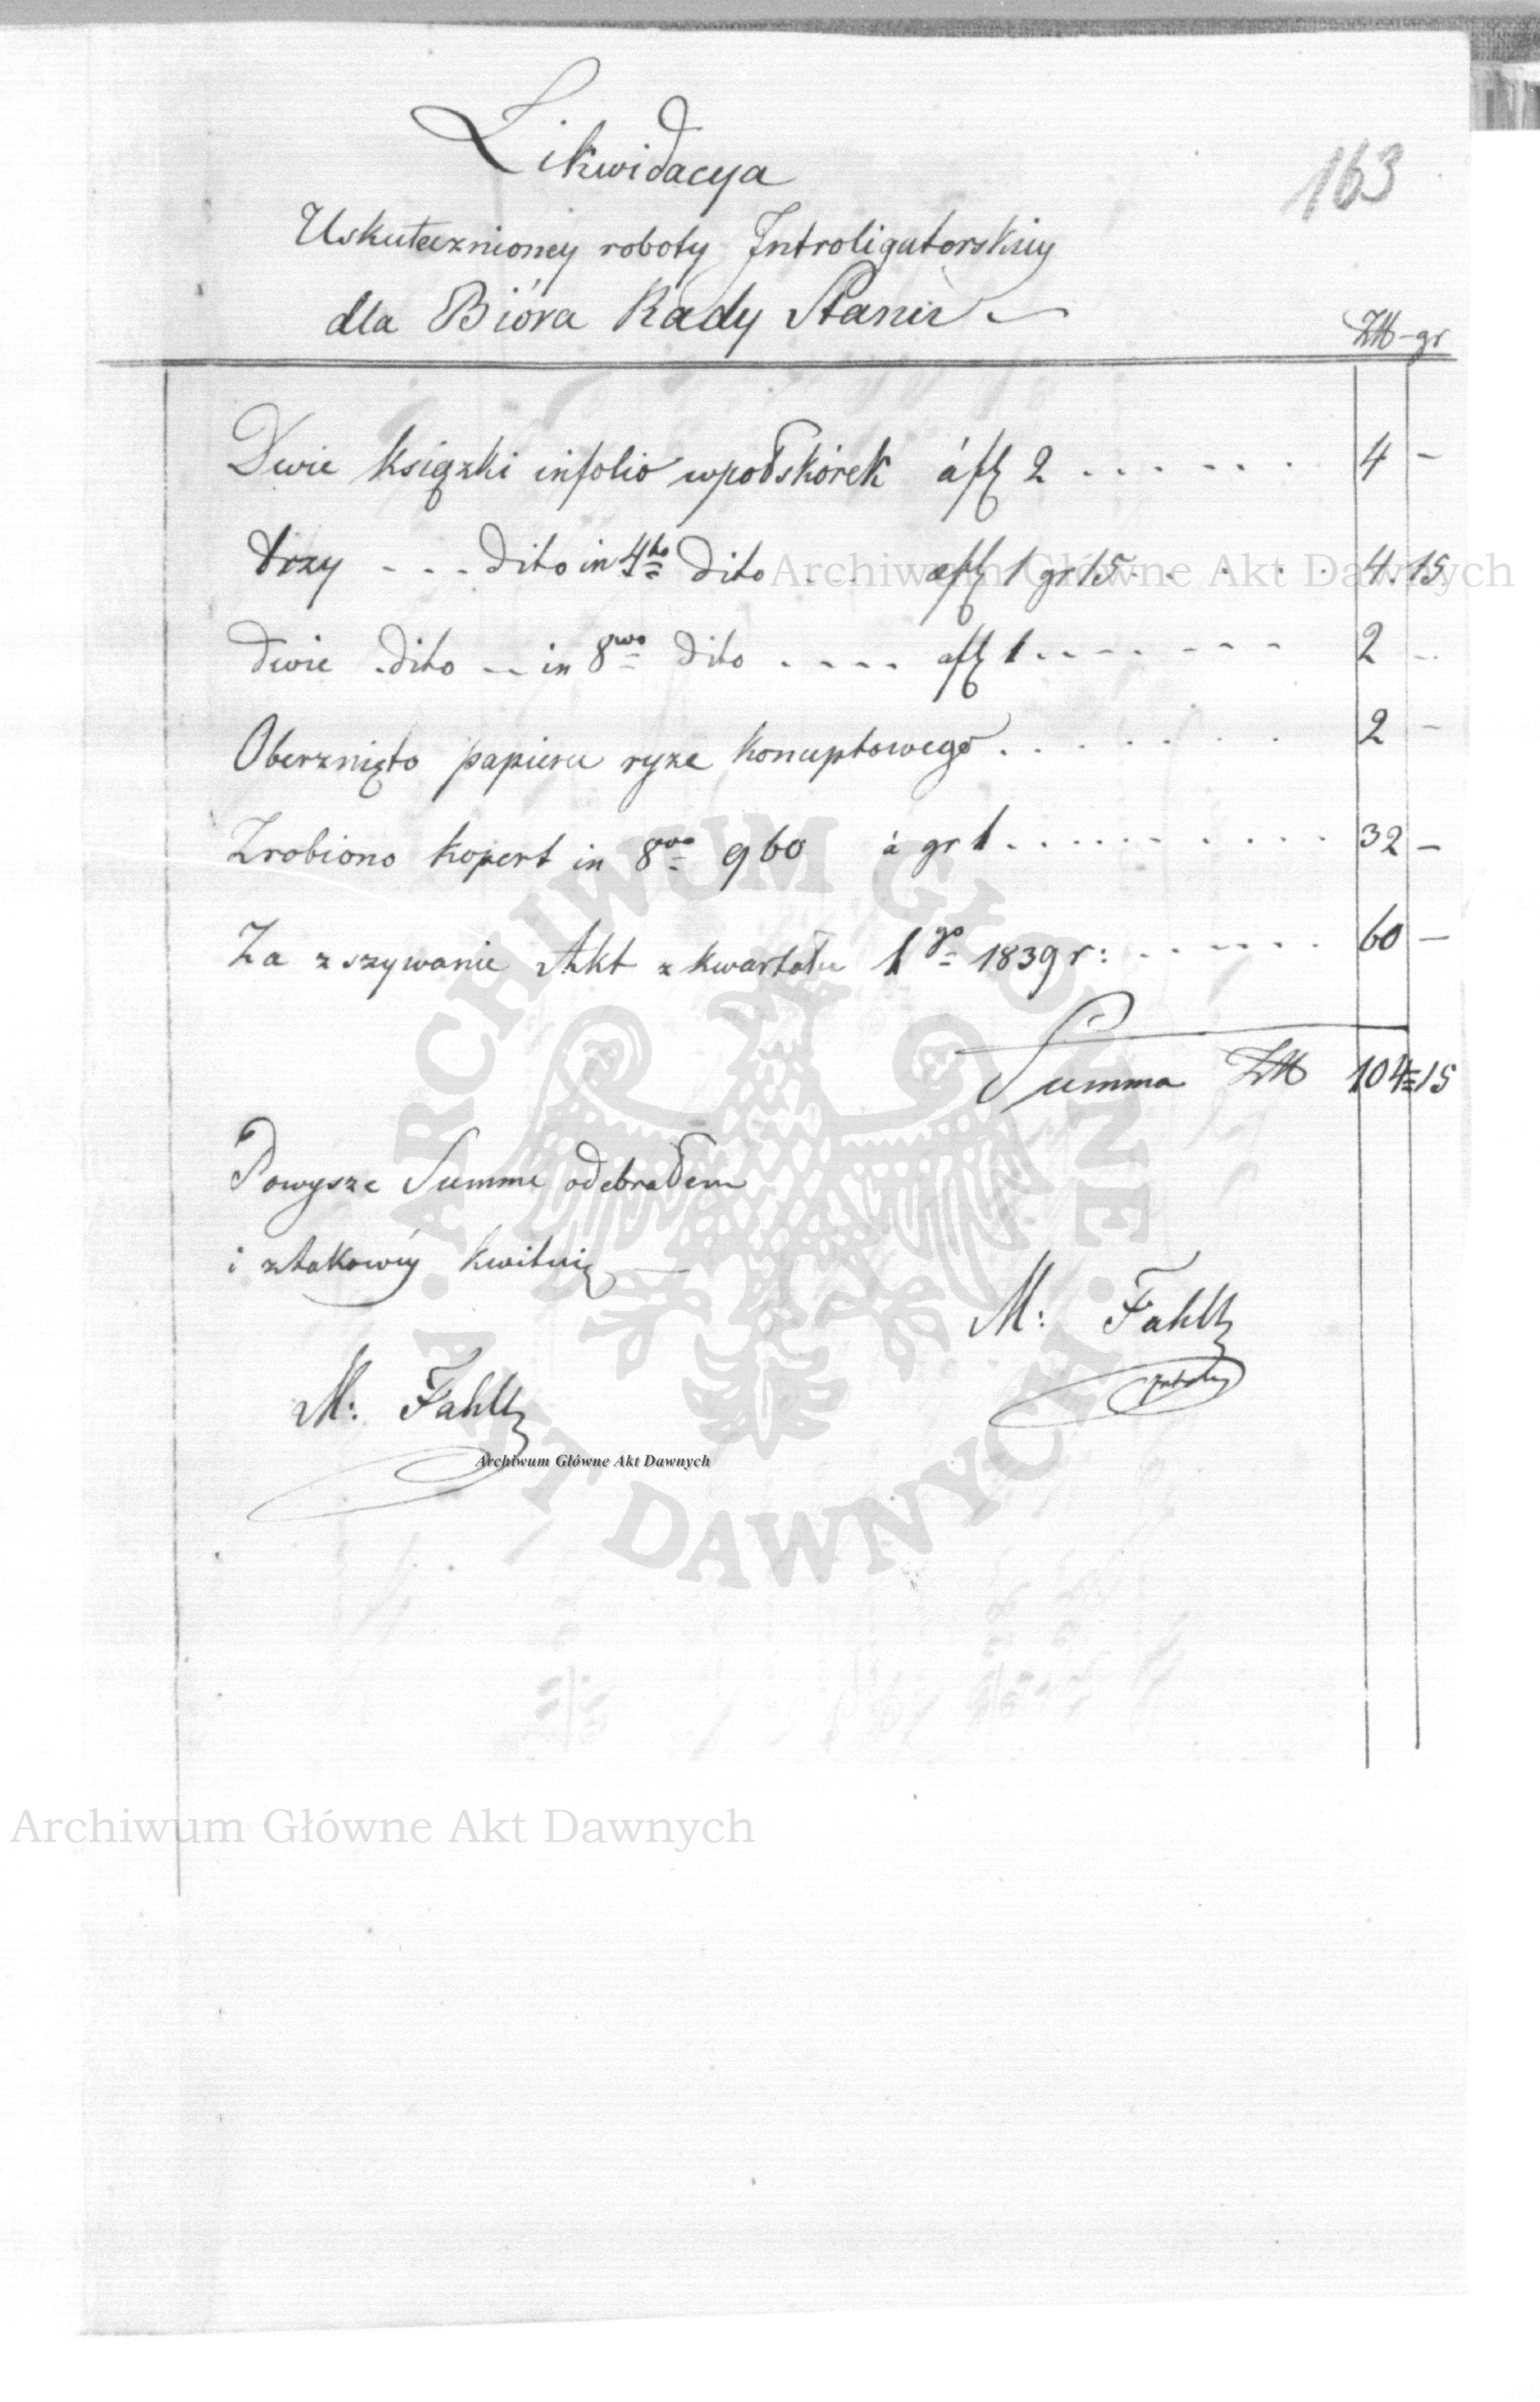 163
Likwidacya
Uskutecznioney roboty Introligatorskiey
dla Bióra Rady Stanu
Złt - gr
Dwie książki infolio wpołskórek á fl 2 . . . . . . 4 -
trzy - - - dito in 4to dito . . . a fl 1 gr 15 . . . . . 4. 15
dwie . dito - - in 8vo dito . . . . a fl 1 . - - - - - - 2 -
Oberznięto papieru ryze konceptowego . . . . . . . 2 -
Zrobiono kopert in 8vo 960 á gr 1 . . . . . . . . . 32 -
Za zszywanie Akt z kwartału 1go 1839 r: . . . . . . 60 -
Summa Złt 104=15
Powysze Summe odebrałem
i ztakowéy kwituię
M: Fahltz
M: Fahltz
Archiwum Główne Akt Dawnych
Archiwum Główne Akt Dawnych
Archiwum Główne Akt Dawnych
· ARCHIWUM GŁÓWNE · AKT DAWNYCH